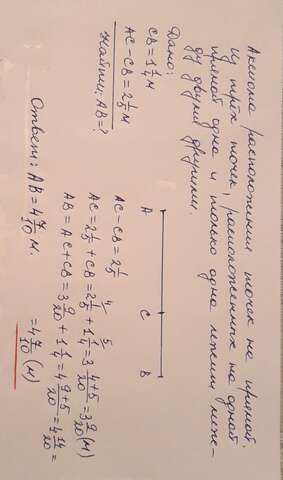 Аксиома расположения точек на прямой.
Из трёх точек, расположенных на одной
прямой одна и только одна лежит меж-
ду двумя другими.
Дано:
CB = 1 1/4 м
AC − CB = 2 1/5 м
Найти: AB = ?
A C B
AC − CB = 2 1/5
AC = 2 1/5 + CB = 2 1/5 + 1 1/4 = 3 (4+5)/20 = 3 9/20 (м)
AB = AC + CB = 3 9/20 + 1 1/4 = 4 (9+5)/20 = 4 14/20 =
= 4 7/10 (м)
Ответ: AB = 4 7/10 м.